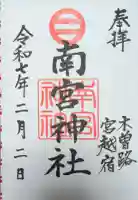 奉拝
木曽路
宮越宿
南宮神社
令和七年二月二日